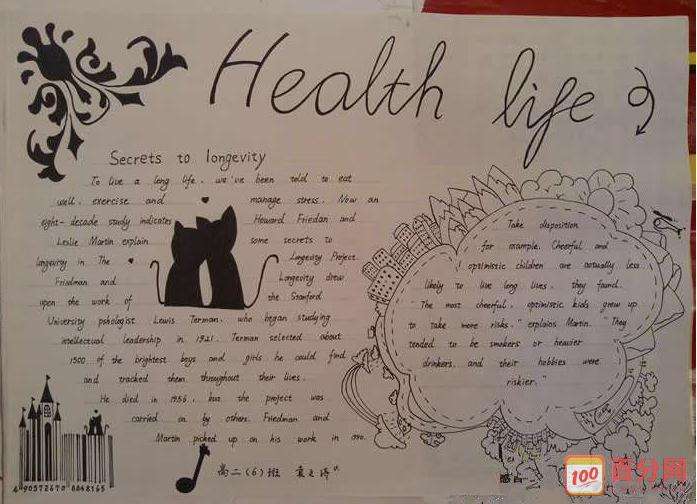 Health life
Secrets to longevity
To live a long life, we've been told to eat
well, exercise and manage stress. Now an
eight-decade study indicates Howard Friedan and
Leslie Martin explain some secrets to
longevity in The Longevity Project.
Friedman and Longevity drew
upon the work of the Stanford
University pshologist Lewis Terman, who began studying
intellectual leadership in 1921. Terman selected about
1500 of the brightest boys and girls he could find
and tracked them throughout their lives.
He died in 1956, but the project was
carried on by others. Friedman and
Martin picked up on his work in 1990.
Take disposition
for example. Cheerful and
optimistic children are actually less
likely to live long lives, they found.
"The most cheerful, optimistic kids grew up
to take more risks," explains Martin. "They
tended to be smokers or heavier
drinkers, and their hobbies were
riskier."
4 905726 70 8068165
高二(6)班
100
百分网